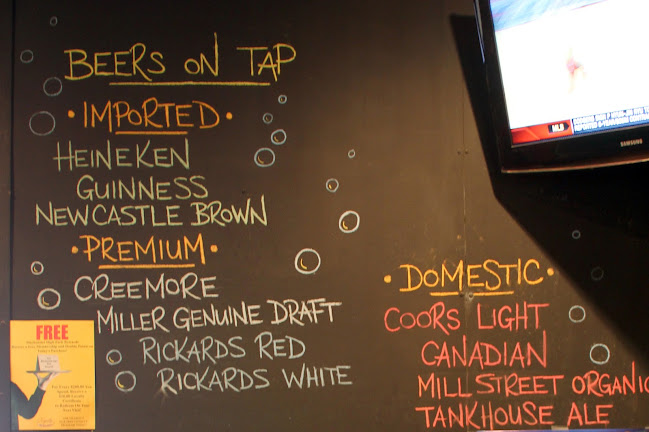 BEERS ON TAP
IMPORTED
HEINEKEN
GUINNESS
NEWCASTLE BROWN
PREMIUM
CREEMORE
MILLER GENUINE DRAFT
RICKARDS RED
RICKARDS WHITE
DOMESTIC
COORS LIGHT
CANADIAN
MILL STREET ORGANIC
TANKHOUSE ALE
FREE
MLB
SAMSUNG